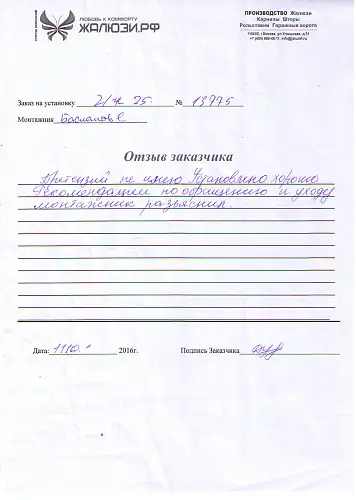 ЛЮБОВЬ К КОМФОРТУ
ЖАЛЮЗИ.РФ
ПРОИЗВОДСТВО Жалюзи
Карнизы Шторы
Рольставни Гаражные ворота
Заказ на установку № 13775
Монтажник Басманов С
Отзыв заказчика
Претензий не имею Установлено хорошо
Рекомендации по обращению и уходу
монтажник разъяснил.
Дата: 11 10 2016г. Подпись Заказчика